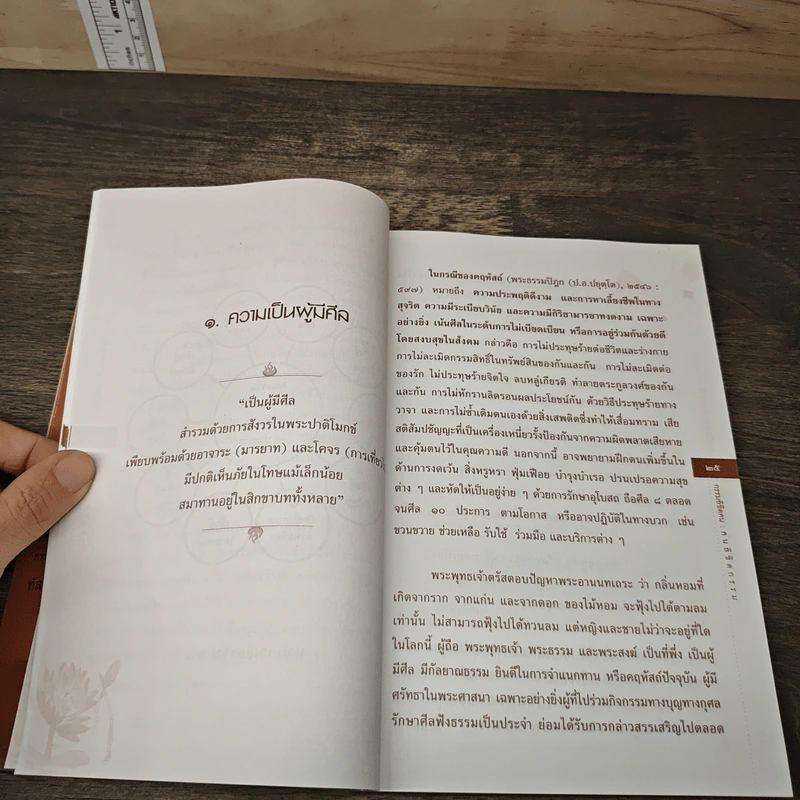 ๑. ความเป็นผู้มีศีล
“เป็นผู้มีศีล
สำรวมด้วยการสังวรในพระปาติโมกข์
เพียบพร้อมด้วยอาจาระ (มารยาท) และโคจร (การเที่ยว
มีปกติเห็นภัยในโทษแม้เล็กน้อย
สมาทานอยู่ในสิกขาบททั้งหลาย”
ในกรณีของคฤหัสถ์ (พระธรรมปิฎก (ป.อ.ปยุตฺโต), ๒๕๔๖ :
๕๙๗) หมายถึง ความประพฤติดีงาม และการหาเลี้ยงชีพในทาง
สุจริต ความมีระเบียบวินัย และความมีกิริยามารยาทงดงาม เฉพาะ
อย่างยิ่ง เน้นศีลในระดับการไม่เบียดเบียน หรือการอยู่ร่วมกันด้วยดี
โดยสงบสุขในสังคม กล่าวคือ การไม่ประทุษร้ายต่อชีวิตและร่างกาย
การไม่ละเมิดกรรมสิทธิ์ในทรัพย์สินของกันและกัน การไม่ละเมิดต่อ
ของรัก ไม่ประทุษร้ายจิตใจ ลบหลู่เกียรติ ทำลายตระกูลวงศ์ของกัน
และกัน การไม่หักรานลิดรอนผลประโยชน์กัน ด้วยวิธีประทุษร้ายทาง
วาจา และการไม่ซ้ำเติมตนเองด้วยสิ่งเสพติดซึ่งทำให้เสื่อมทราม เสีย
สติสัมปชัญญะที่เป็นเครื่องเหนี่ยวรั้งป้องกันจากความผิดพลาดเสียหาย
และคุ้มตนไว้ในคุณความดี นอกจากนี้ อาจพยายามฝึกตนเพิ่มขึ้นใน
ด้านการงดเว้น สิ่งหรูหรา ฟุ่มเฟือย บำรุงบำเรอ ปรนเปรอความสุข
ต่าง ๆ และหัดให้เป็นอยู่ง่าย ๆ ด้วยการรักษาอุโบสถ ถือศีล ๘ ตลอด
จนศีล ๑๐ ประการ ตามโอกาส หรืออาจปฏิบัติในทางบวก เช่น
ขวนขวาย ช่วยเหลือ รับใช้ ร่วมมือ และบริการต่าง ๆ
พระพุทธเจ้าตรัสตอบปัญหาพระอานนทเถระ ว่า กลิ่นหอมที่
เกิดจากราก จากแก่น และจากดอก ของไม้หอม จะฟุ้งไปได้ตามลม
เท่านั้น ไม่สามารถฟุ้งไปได้ทวนลม แต่หญิงและชายไม่ว่าจะอยู่ที่ใด
ในโลกนี้ ผู้ถือ พระพุทธเจ้า พระธรรม และพระสงฆ์ เป็นที่พึ่ง เป็นผู้
มีศีล มีกัลยาณธรรม ยินดีในการจำแนกทาน หรือคฤหัสถ์ปัจจุบัน ผู้มี
ศรัทธาในพระศาสนา เฉพาะอย่างยิ่งผู้ที่ไปร่วมกิจกรรมทางบุญทางกุศล
รักษาศีลฟังธรรมเป็นประจำ ย่อมได้รับการกล่าวสรรเสริญไปตลอด
๒๕